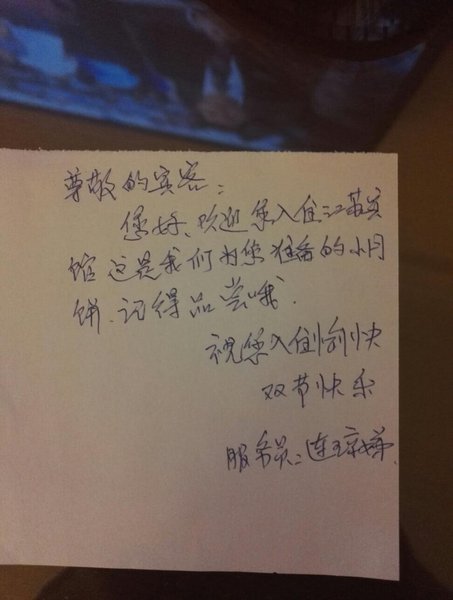 尊敬的宾客：
您好、欢迎您入住江苏宾
馆 这是我们为您准备的小月
饼、记得品尝哦.
祝您入住愉快
双节快乐
服务员：连琼